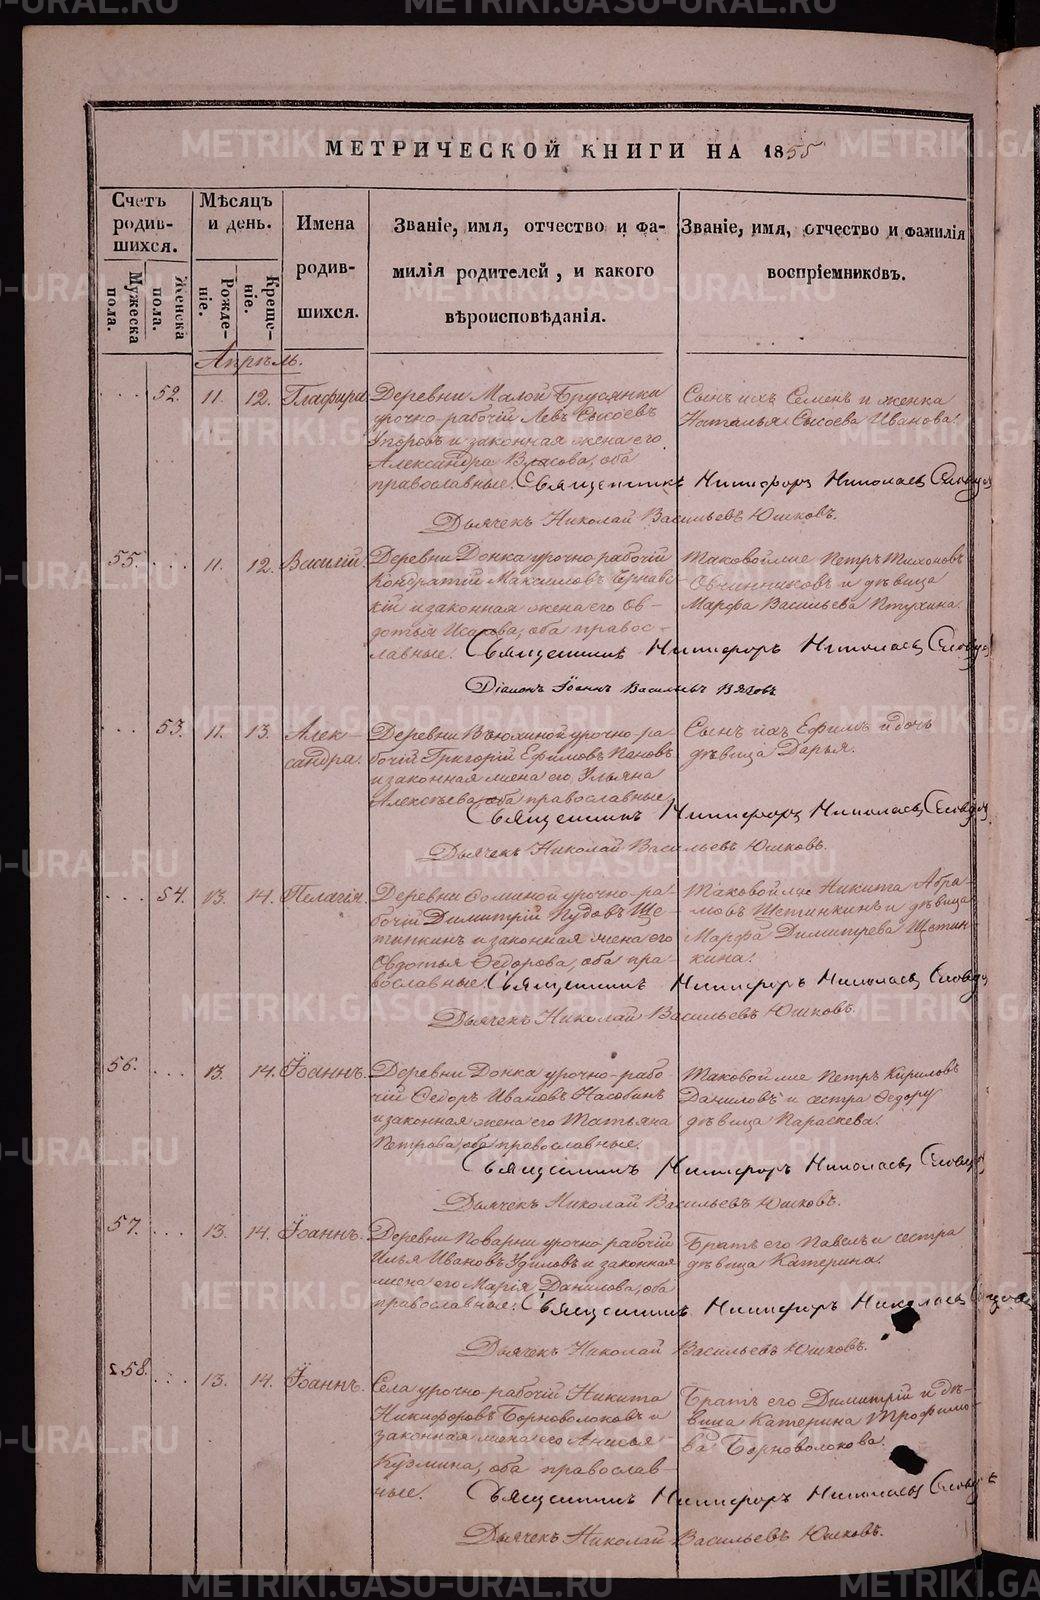 МЕТРИЧЕСКОЙ КНИГИ НА 1855
Счетъ родившихся.
Мѣсяцъ и день.
Имена родившихся.
Званіе, имя, отчество и фамилія родителей, и какого вѣроисповѣданія.
Званіе, имя, отчество и фамилія воспріемниковъ.
Мужеска пола.
Женска пола.
Рожденіе.
Крещеніе.
Апрѣль.
52. 11. 12. Глафира
Деревни Малой Брусянки
урочно-рабочій Левъ Сысоевъ
и законная жена его
Александра Власова, оба
православные.
Сынъ ихъ Семенъ и женка
Наталья Сысоева Иванова.
Священникъ Никифоръ Николаевъ Словцо
Дьячекъ Николай Васильевъ Юшковъ.
55. 11. 12. Василій
Деревни Донка урочно-рабочій
Кондратій Максимовъ Чернав-
скій и законная жена его Ов-
дотья Исакова, оба право-
славные.
Таковой же Петръ Тихоновъ
Овчинниковъ и дѣвица
Марфа Васильева Птухина.
Священникъ Никифоръ Николаевъ Словцо
Діаконъ Іоаннъ Васильевъ Вяговъ
53. 11. 13. Алек-
сандра.
Деревни Вьюхиной урочно-ра-
бочій Григорій Ефимовъ Пановъ
и законная жена его Ульяна
Алексѣева, оба православные.
Сынъ ихъ Ефимъ и дочь
дѣвица Дарья.
Священникъ Никифоръ Николаевъ Словцо
Дьячекъ Николай Васильевъ Юшковъ.
54. 13. 14. Пелагія.
Деревни Фоминой урочно-ра-
бочій Димитрій Пудовъ Ще-
тинкинъ и законная жена его
Овдотья Ѳедорова, оба пра-
вославные.
Таковой же Никита Абра-
мовъ Щетинкинъ и дѣвица
Марфа Димитрева Щетин-
кина.
Священникъ Никифоръ Николаевъ Словцо
Дьячекъ Николай Васильевъ Юшковъ.
56. 13. 14. Іоаннъ.
Деревни Донка урочно-рабо-
чій Ѳедоръ Ивановъ Насобинъ
и законная жена его Татьяна
Петрова, оба православные.
Таковой же Петръ Кириловъ
Даниловъ и сестра Ѳедору
дѣвица Параскева.
Священникъ Никифоръ Николаевъ Словцо
Дьячекъ Николай Васильевъ Юшковъ.
57. 13. 14. Іоаннъ.
Деревни Поварни урочно-рабочій
Илья Ивановъ Удиловъ и законная
жена его Марія Данилова, оба
православные.
Братъ его Павелъ и сестра
дѣвица Катерина.
Священникъ Никифоръ Николаевъ
Дьячекъ Николай Васильевъ Юшковъ.
58. 13. 14. Іоаннъ.
Села урочно-рабочій Никита
Никифоровъ Борноволоковъ и
законная жена его Анисья
Кузмина, оба православ-
ные.
Братъ его Димитрій и дѣ-
вица Катерина Трофимо-
ва Борноволокова.
Священникъ Никифоръ Николаевъ Словцо
Дьячекъ Николай Васильевъ Юшковъ.
METRIKI.GASO-URAL.RU